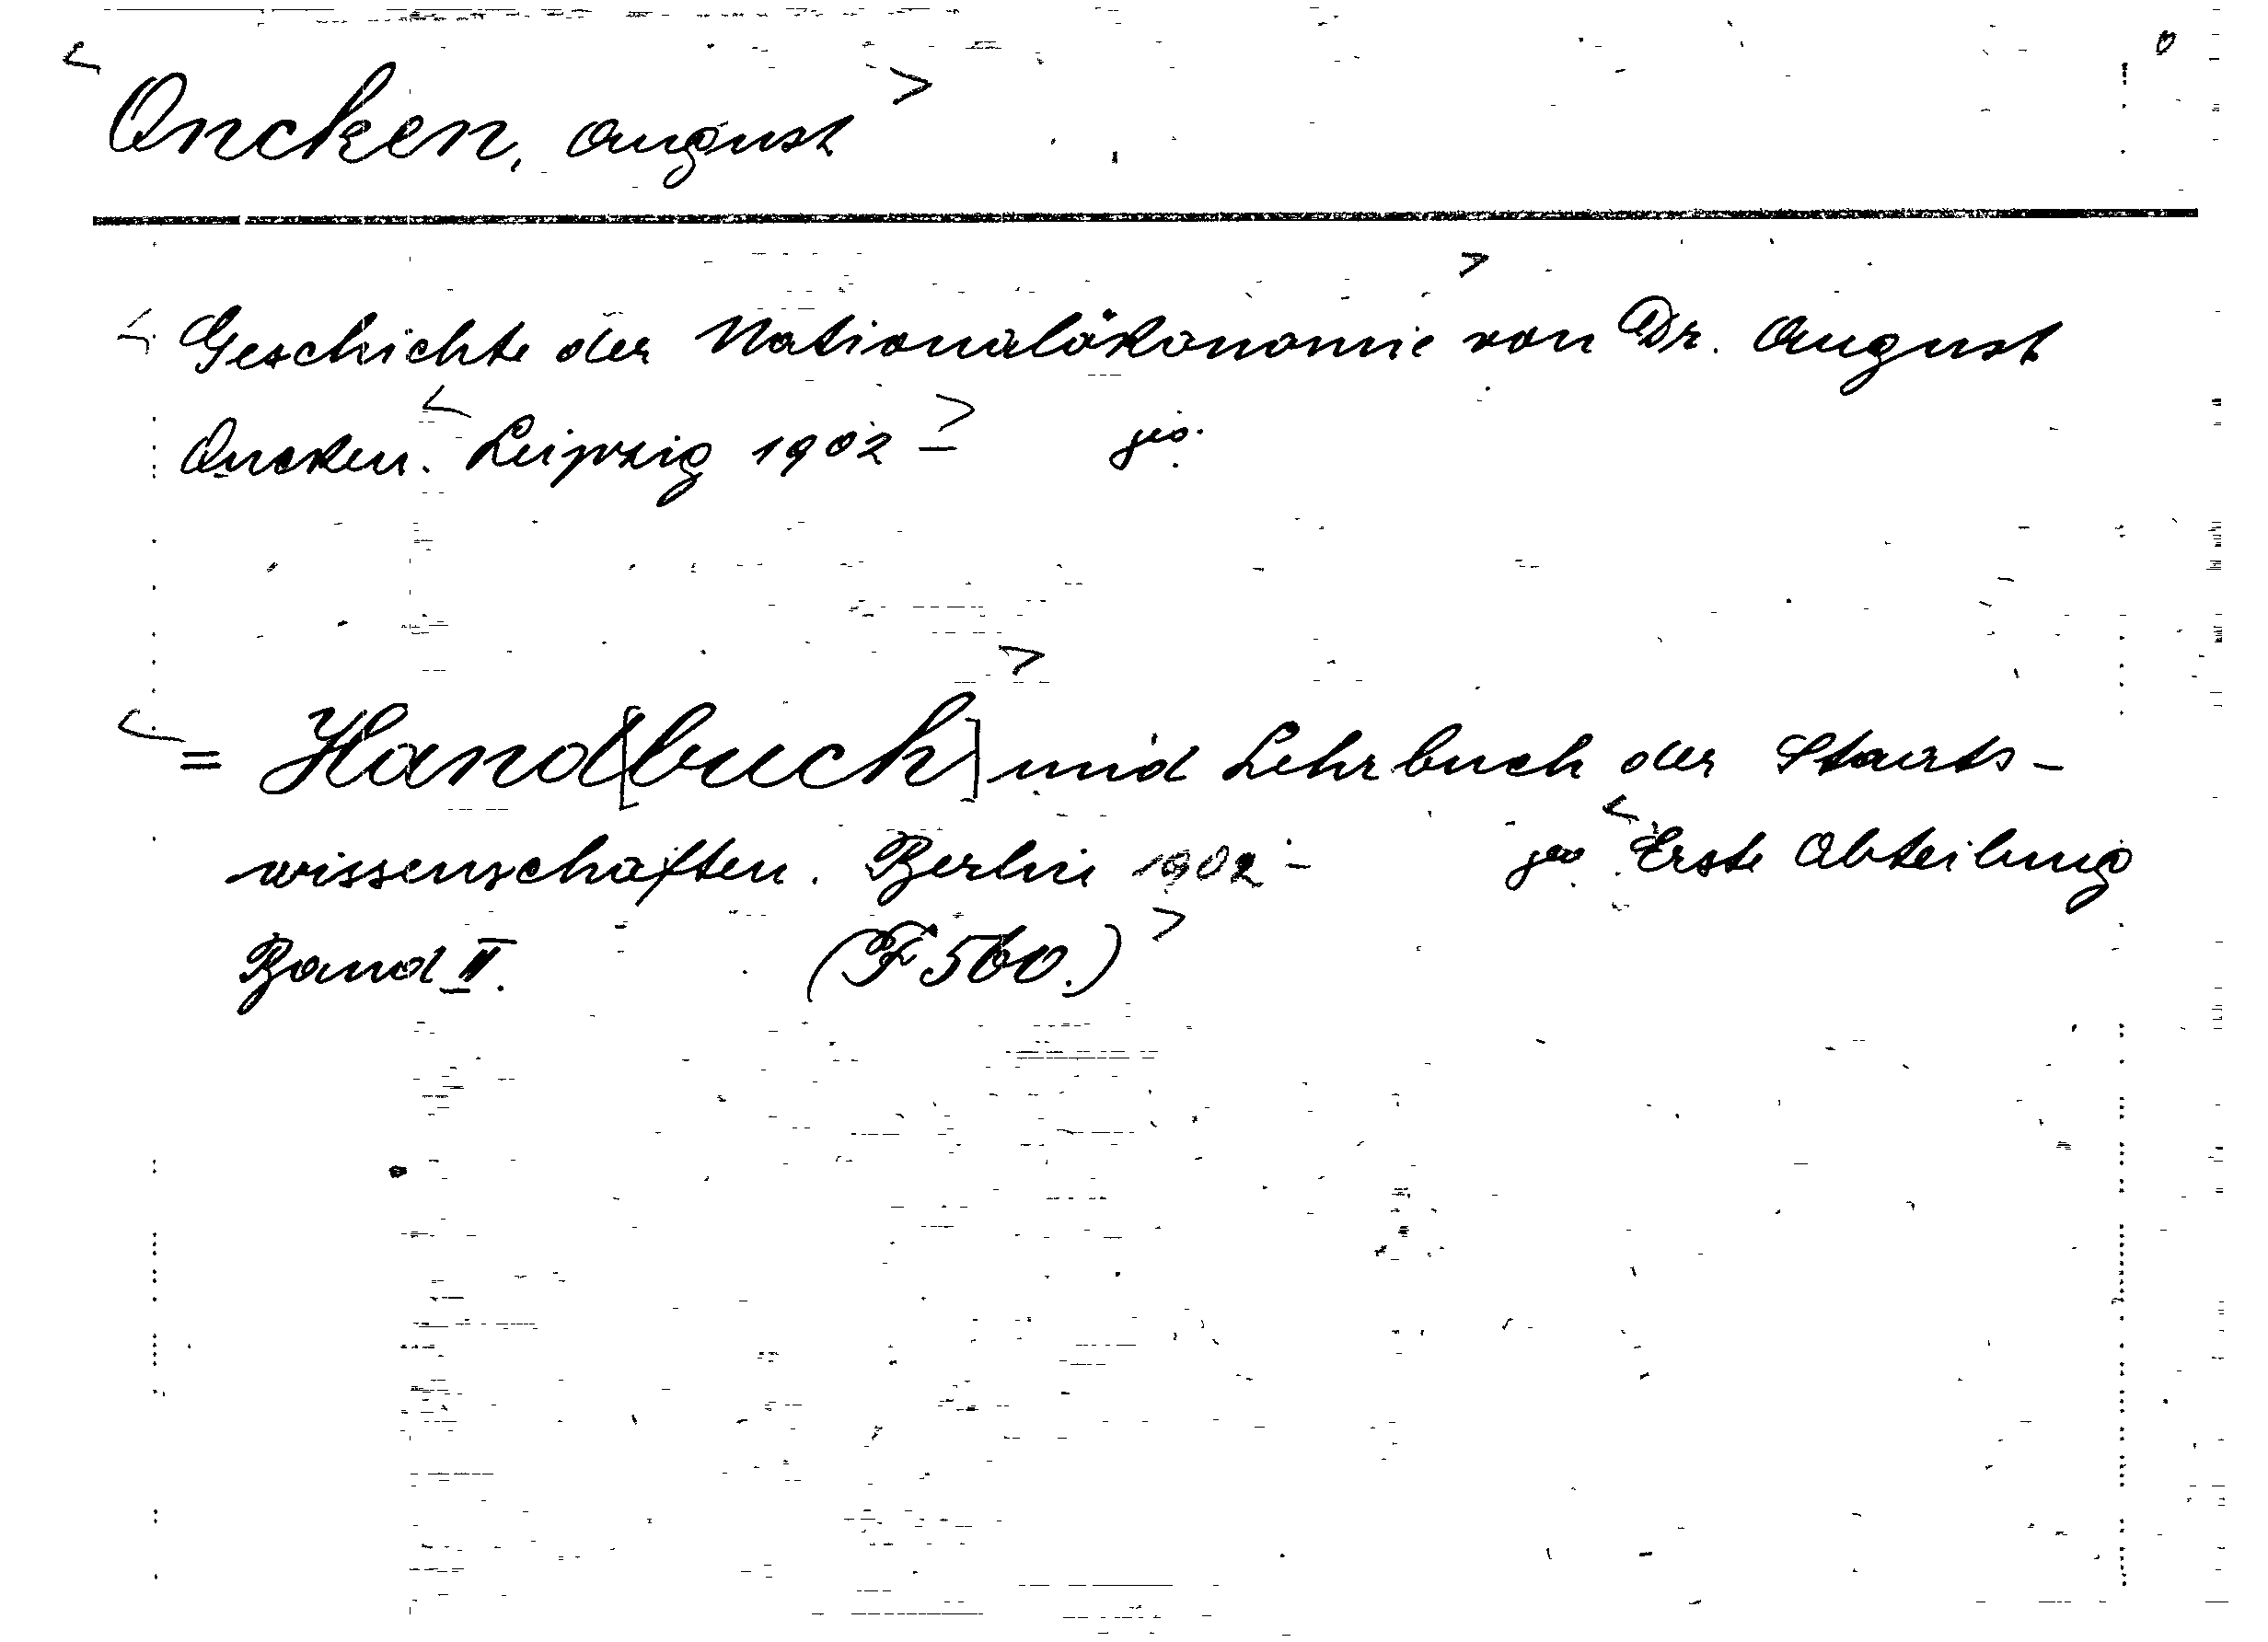 <Oncken, August>
<Geschichte der Nationalökonomie> von Dr. August
Oncken. <Leipzig 1902-> 
<= Hand[buch]> und Lehrbuch der Staats-
wissenschaften. Berlin 1902- <Erste Abteilung
Band II. (F 560.)>